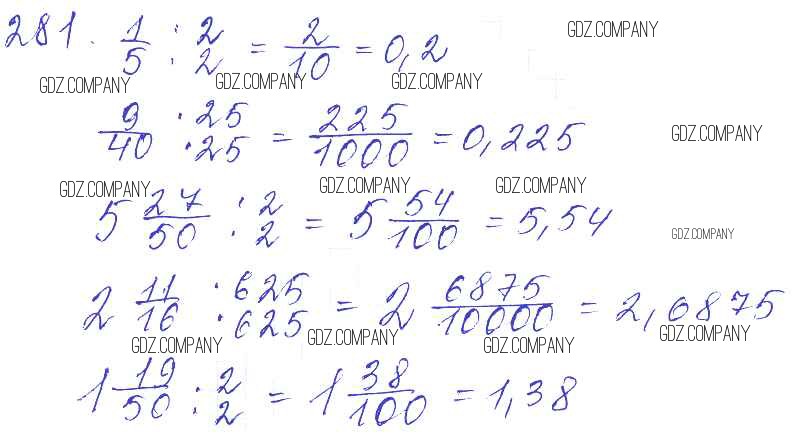 281. 1/5 : 2/2 = 2/10 = 0,2
GDZ.COMPANY
GDZ.COMPANY GDZ.COMPANY GDZ.COMPANY
9/40 · 25/25 = 225/1000 = 0,225
GDZ.COMPANY
GDZ.COMPANY GDZ.COMPANY GDZ.COMPANY
5 27/50 : 2/2 = 5 54/100 = 5,54
GDZ.COMPANY
2 11/16 · 625/625 = 2 6875/10000 = 2,6875
GDZ.COMPANY GDZ.COMPANY GDZ.COMPANY GDZ.COMPANY
1 19/50 : 2/2 = 1 38/100 = 1,38